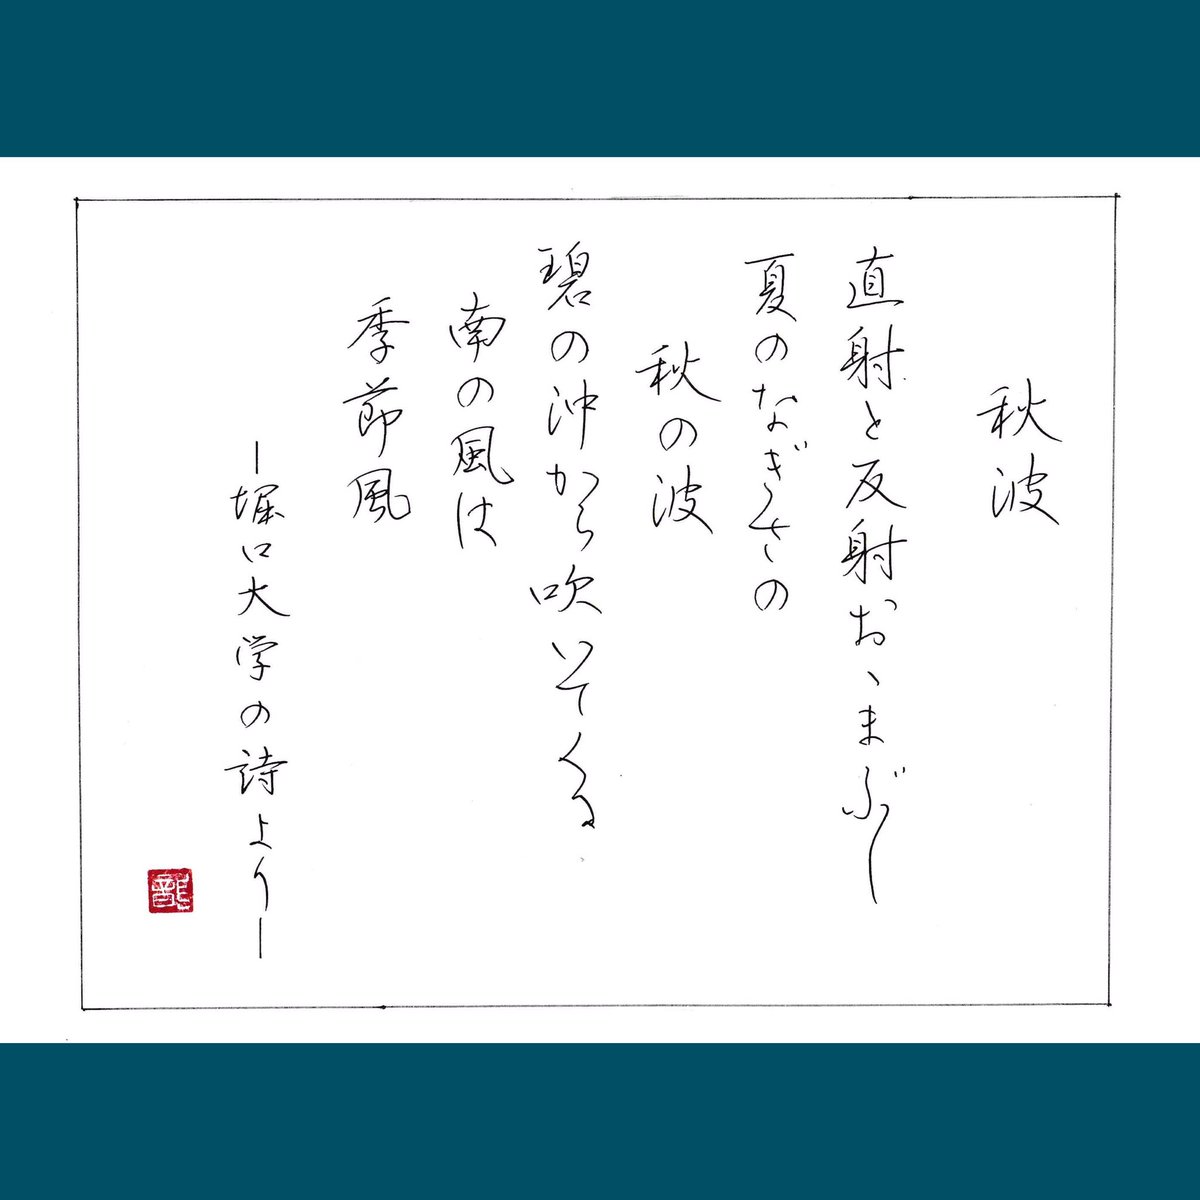 秋波
直射と反射おゝまぶし
夏のなぎさの
秋の波
碧の沖から吹いてくる
南の風は
季節風
ー堀口大学の詩よりー